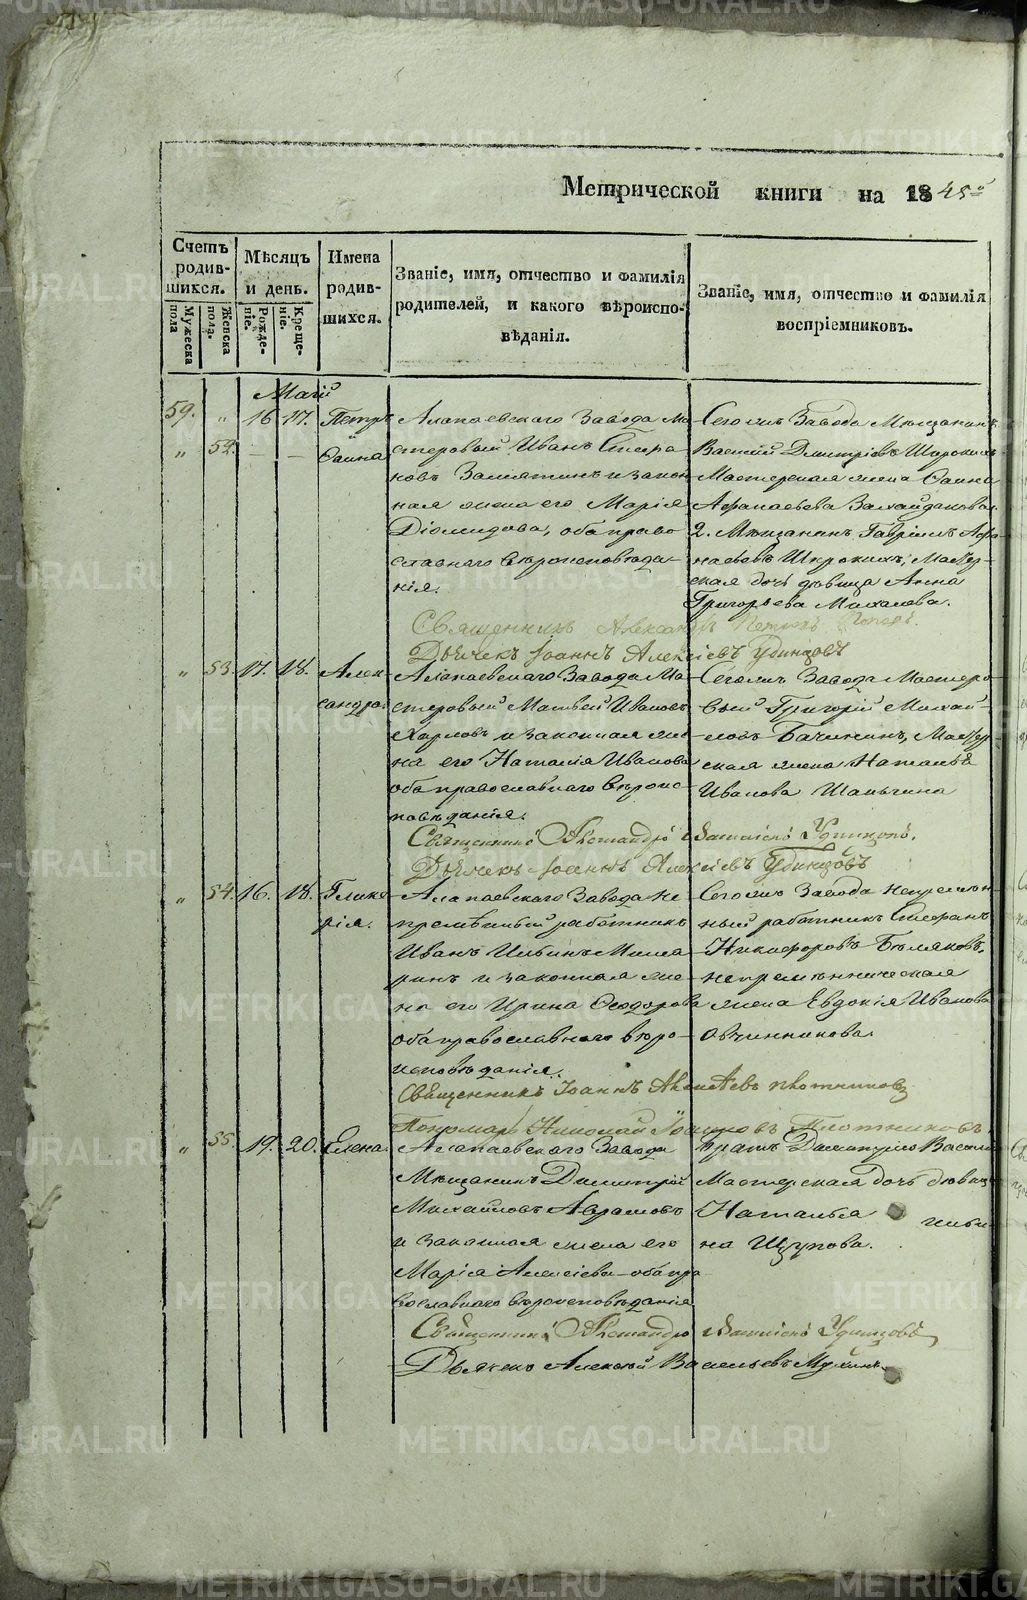 METRIKI.GASO-URAL.RU
Метрической книги на 1845й
Счетъ родив-шихся.
Мужеска пола
Женска пола.
Мѣсяцъ и день.
Рожде-ніе.
Креще-ніе.
Имена родив-шихся.
Званіе, имя, отчество и фамилія родителей, и какого вѣроиспо-вѣданія.
Званіе, имя, отчество и фамилія воспріемниковъ.
Маій
59. " 16 17. Петръ
" 52. — — Фаина
Алапаевскаго Завода Ма-
стеровый Иванъ
новъ Замятинъ и закон
ная жена его Марія
Діомидова, оба право
славнаго вѣроисповѣда-
нія.
Сего жъ Завода Мѣщанинъ
Василій Дмитріевъ Широкихъ
Мастерская жена Фаина
Афанасьева
2. Мѣщанинъ Гавріилъ Афа-
насьевъ Широкихъ, Мастер-
ская дочь дѣвица Анна
Григорьева Михалева.
Священникъ Александръ Поповъ.
Дьячекъ Іоаннъ Алексіевъ Удинцовъ
" 53. 17. 18. Алек-
сандра.
Алапаевскаго Завода Ма-
стеровый Матвей Ивановъ
Харловъ и законная же-
на его Наталія Иванова
оба православнаго вѣроис-
повѣданія.
Сего жъ Завода Мастеро-
вый Григорій Михай-
ловъ Бачининъ, Мастер-
ская жена Наталья
Иванова Шаньгина
Священникъ Александръ Удинцовъ.
Дьячекъ Іоаннъ Алексіевъ Удинцовъ
" 54. 16. 18. Глике-
рія.
Алапаевскаго Завода Не-
премѣнный работникъ
Иванъ Ильинъ Миша-
ринъ и законная же-
на его Ирина Ѳеодорова
оба православнаго вѣро-
исповѣданія.
Сего жъ Завода непремѣн-
ный работникъ Стефанъ
Никифоровъ Бѣляковъ,
непремѣнническая
жена Евдокія Иванова
Овчинникова.
Священникъ Іоаннъ Алексѣевъ Плотниковъ
Пономарь Николай Плотниковъ
" 55 19. 20. Елена.
Алапаевскаго Завода
Мѣщанинъ Димитрій
Михайловъ Аврамовъ
и законная жена его
Марія Алексіева оба пра
вославнаго вѣроисповѣданія
братъ Димитрія Васили
Мастерская дочь дѣвица
Наталья Ильи-
на Щупова.
Священникъ Александръ Удинцовъ
Дьячекъ Алексѣй Васильевъ